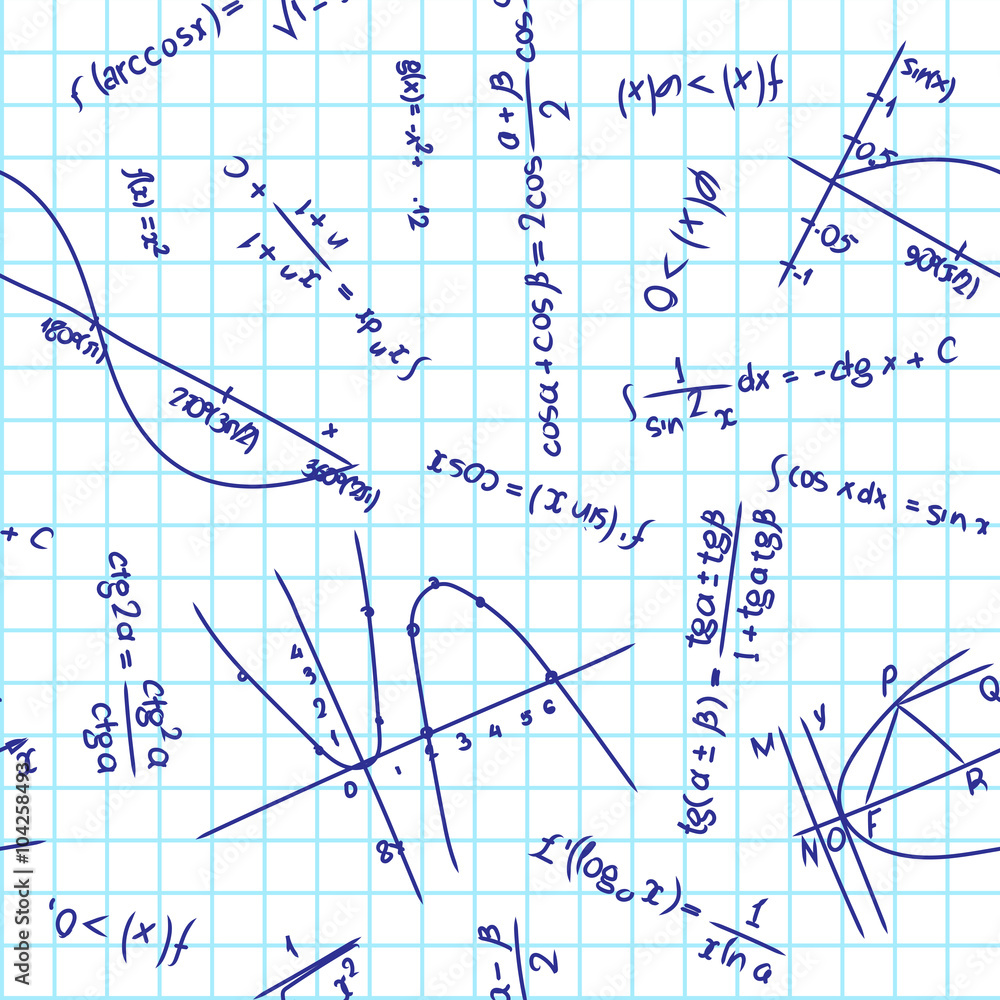 f'(arccosx)=
√1-
g(x)=-x²+ .12
cosα+cosβ=2cos α+β/2 cos
f(x)>g(x)
sin(x)
1
0.5
-0.5
-1
90°(π/2)
f(x)=x²
∫xⁿdx = xⁿ+1/n+1 + C
g(x)>0
180°(π)
270°(3π/2)
+
360°(2π)
∫ 1/sin²x dx = -ctg x + C
f'(sin x)=cosx
∫cos xdx = sin x
+ C
ctg2α = ctg²α/ctgα
tg(α±β) = tgα±tgβ/1+tgαtgβ
4
3
2
1
0
1
2
3
4
5
6
8
P
Q
R
M
y
N
O
F
x
f'(logₐx)= 1/xlna
f(x)>0,
1
x²
α-β/2
Adobe Stock | #1042584932
Adobe Stock